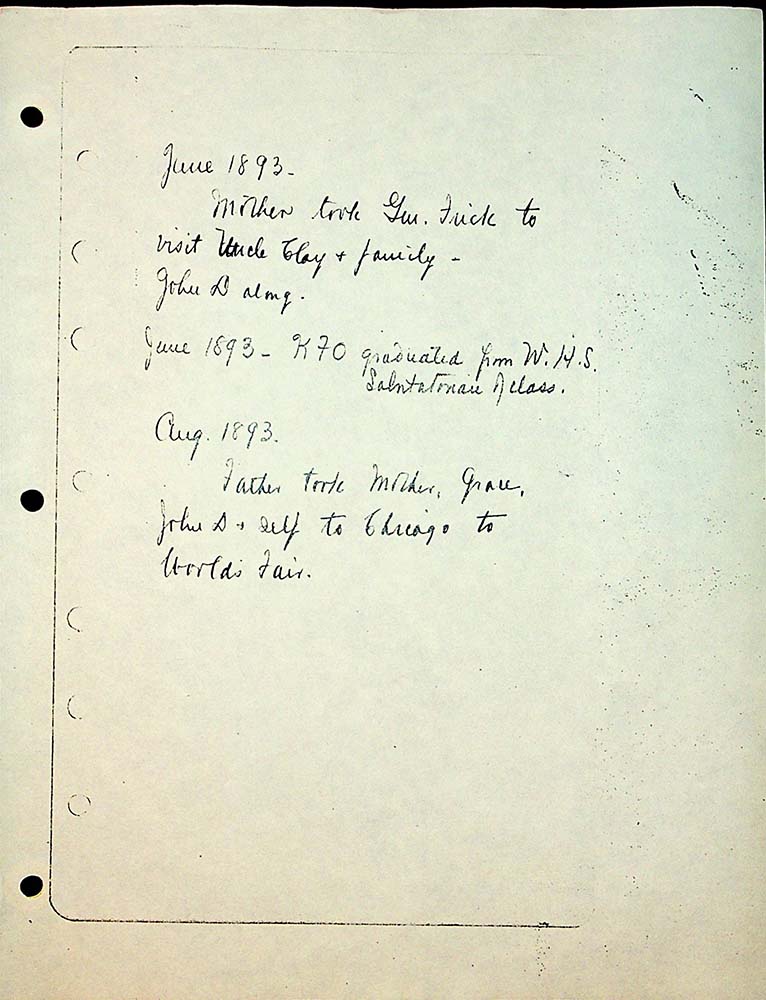 June 1893-
Mother took Gen. Frick to
visit Uncle Clay + family -
John D along.
June 1893 - K70 graduated from W.H.S.
Salutatorian of class.
Aug. 1893.
Father took Mother, Grace,
John D + self to Chicago to
World's Fair.